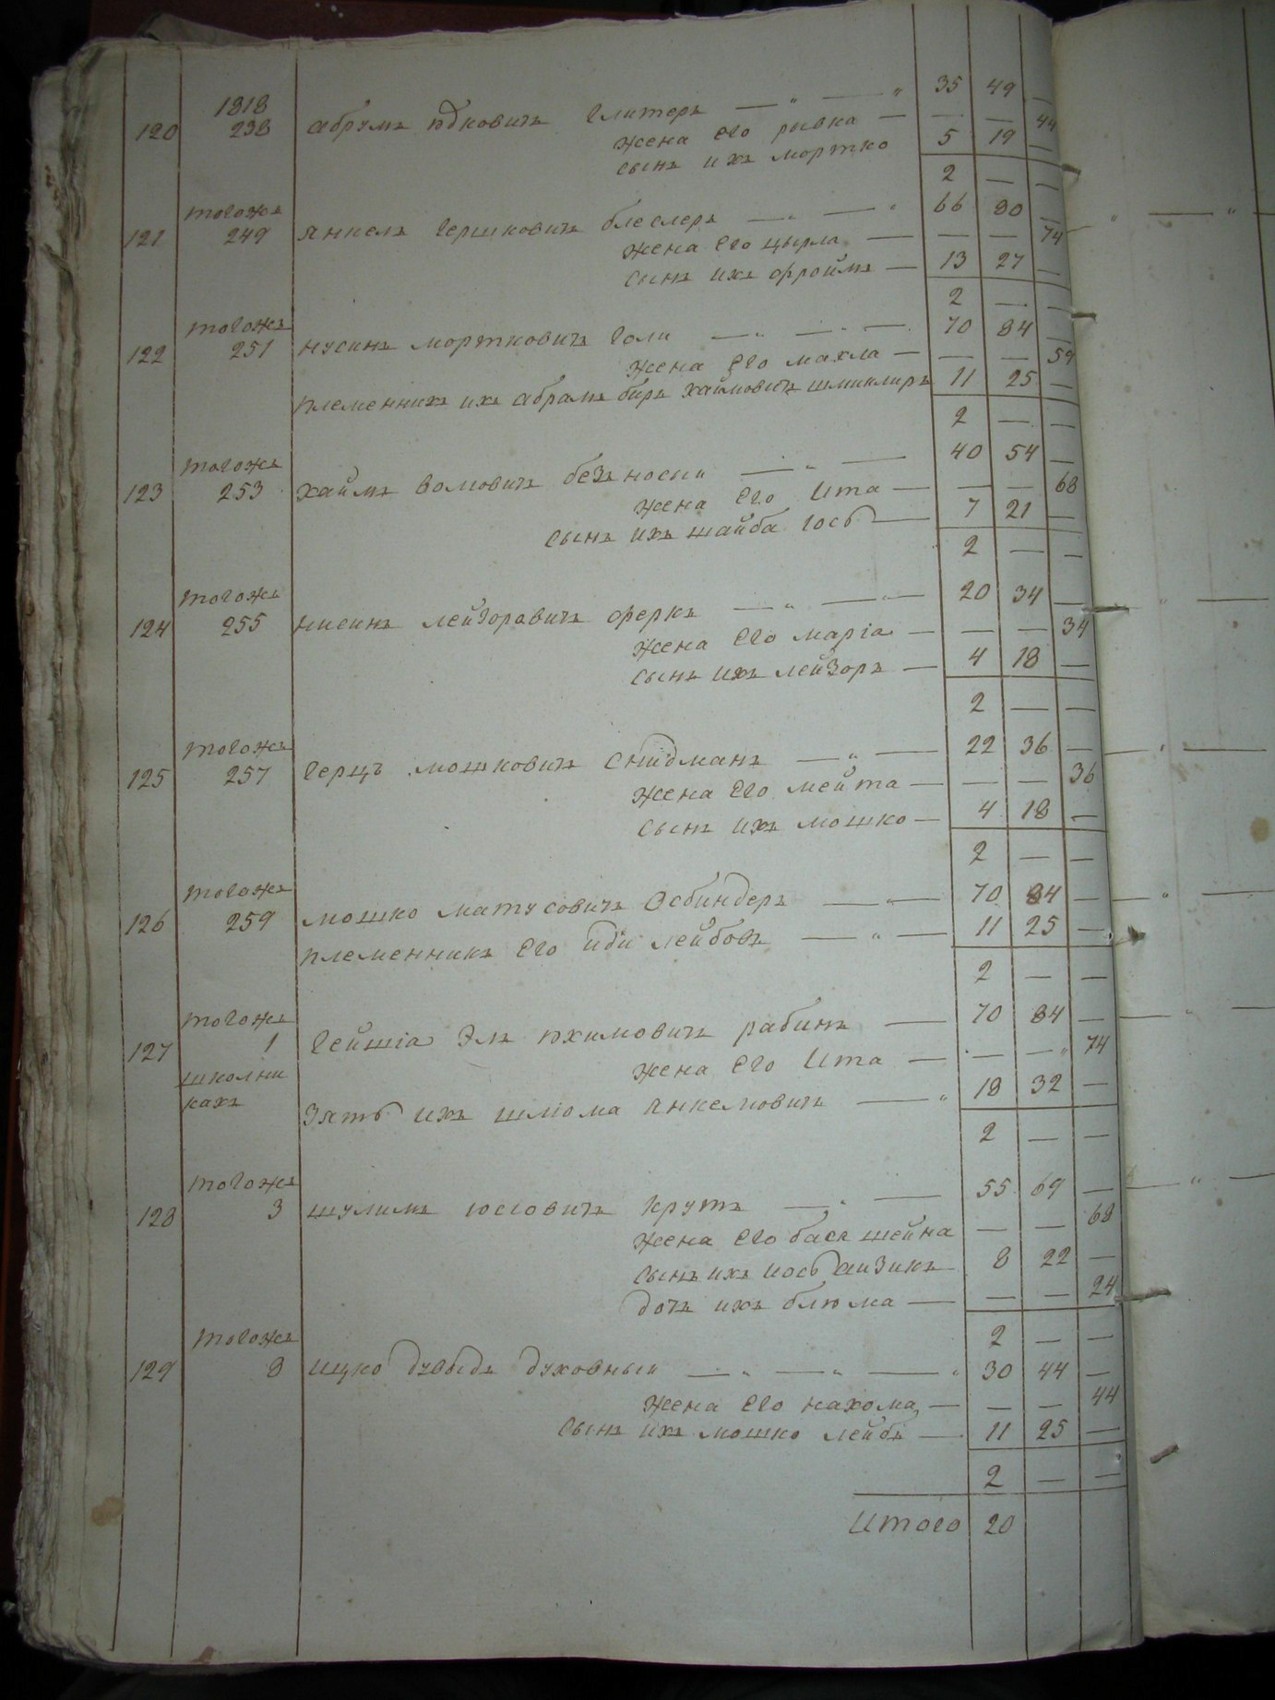 1818
120 238 абрумъ Ицковичъ Глитеръ — „ — „ 35 49 —
жена его ривка — — — 44
сынъ ихъ мортко 5 19 —
2 — —
тогожъ
121 249 янкель Гершковичъ блеслеръ — „ — „ 66 80 —
жена его цырла — — — 74
сынъ ихъ фроймъ — 13 27 —
2 — —
тогожъ
122 251 нусинъ мортковичъ голи — „ — „ — 70 84 —
жена его махла — — — 59
племенникъ ихъ абрамъ беръ хаймовичъ шмиклиръ 11 25 —
2 — —
тогожъ
123 253 хаймъ волковичъ безносы — „ — 40 54 —
жена его Ита — — — 68
сынъ ихъ шайба Iось — 7 21 —
2 — —
тогожъ
124 255 нисинъ лейзоровичъ феркъ — „ — „ — 20 34 —
жена его маріа — — — 34
сынъ ихъ лейзоръ — 4 18 —
2 — —
тогожъ
125 257 Герцъ мошковичъ Снидманъ — „ — 22 36 —
жена его мейта — — — 36
сынъ ихъ мошко — 4 18 —
2 — —
тогожъ
126 259 мошко матусовичъ Осбиндеръ — „ — 70 84 —
племенникъ его иди лейбовъ — „ — 11 25 —
2 — —
тогожъ
127 1 Гейшіа Эль рабинъ — 70 84 —
жена его Ита — — — „ 74
школни
кахъ
Зять ихъ шліома янкелиовичъ — „ 18 32 —
2 — —
тогожъ
128 3 шулимъ Iосiовичъ Крутъ — „ — 55 69 —
жена его бася шейна — — 68
сынъ ихъ иось аизикъ 8 22 —
дочь ихъ блюма — — — 24
тогожъ 2 — —
129 8 ицко дувыдъ духовный — „ — „ — „ 30 44 —
жена его нахома — — — 44
сынъ ихъ мошко лейбъ — 11 25 —
2 — —
Итого 20